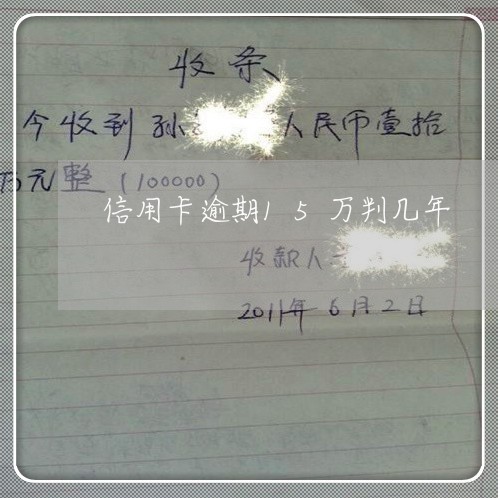 收条
今收到孙人民币壹拾
万元整(100000)
信用卡逾期15万判几年
收款人
2011年6月2日